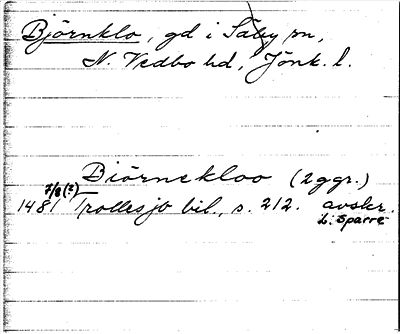 Björnklo, gd i Säby sn,
N. Vedbo hd, Jönk. l.
Biörnekloo (2 ggr.)
7/8 (?)
1481 Trollesjö bil., s. 212. avskr.
L. Sparre